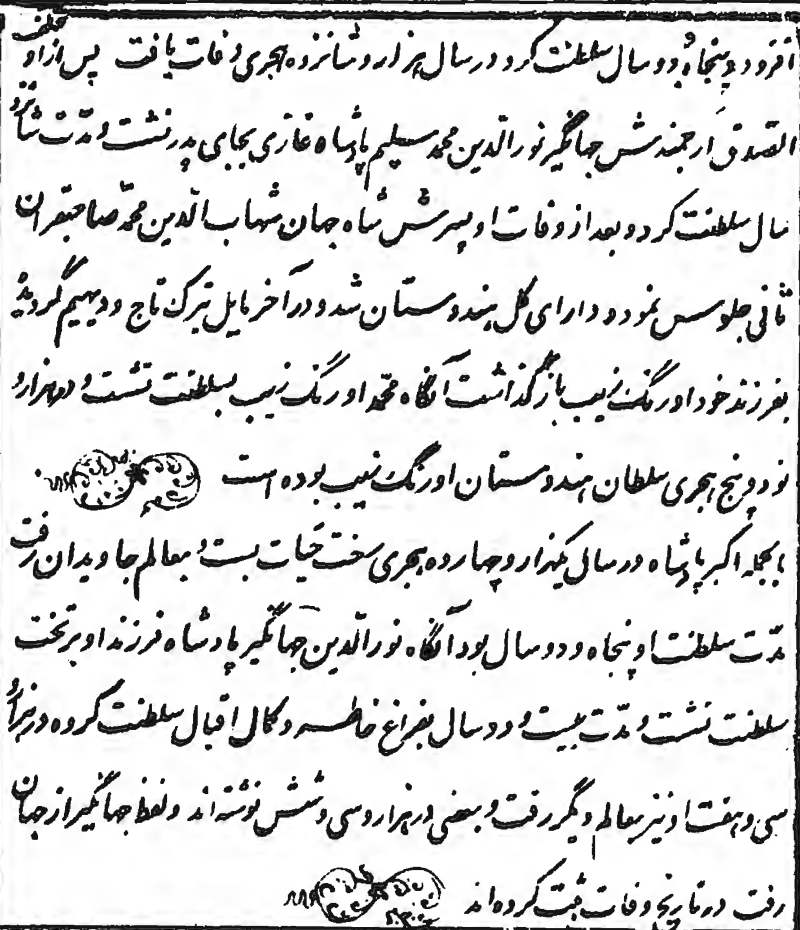 افزود و پنجاه و دو سال سلطنت کرد در سال هزار و شانزده هجری وفات یافت پس از او خلف
الصدق ارجمندش جهانگیر نورالدین محمد سلیم پادشاه غازی بجای پدر نشست و مدت شانزده
سال سلطنت کرد و بعد از وفات او پسرش شاه جهان شهاب الدین محمد صاحبقران
ثانی جلوس نمود و دارای کل هندوستان شد و در آخر مایل بترک تاج و دیهیم گردیده
بفرزند خود اورنگ زیب باز گذاشت آنگاه محمد اورنگ زیب بسلطنت نشست و در هزار و
نود و پنج هجری سلطان هندوستان اورنگ زیب بوده است
بالجمله اکبر پادشاه در سال یکهزار و چهارده هجری رخت حیات بست و بعالم جاویدان رفت
مدت سلطنت او پنجاه و دو سال بود آنگاه نورالدین جهانگیر پادشاه فرزند او بر تخت
سلطنت نشست و مدت بیست و دو سال بفراغ خاطر و کمال اقبال سلطنت کرده در هزار و
سی و هفت او نیز بعالم دیگر رفت و بعضی در هزار و سی و شش نوشته اند و لفظ جهانگیر از جهان
رفت در تاریخ وفات ثبت کرده اند